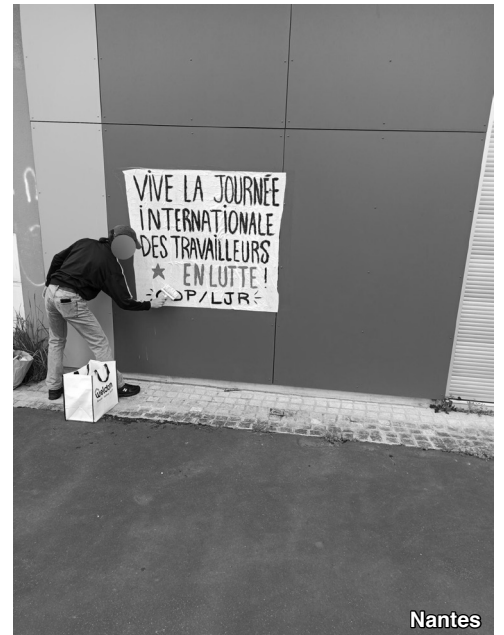 VIVE LA JOURNÉE
INTERNATIONALE
DES TRAVAILLEURS
EN LUTTE !
DP/LJR
Nantes